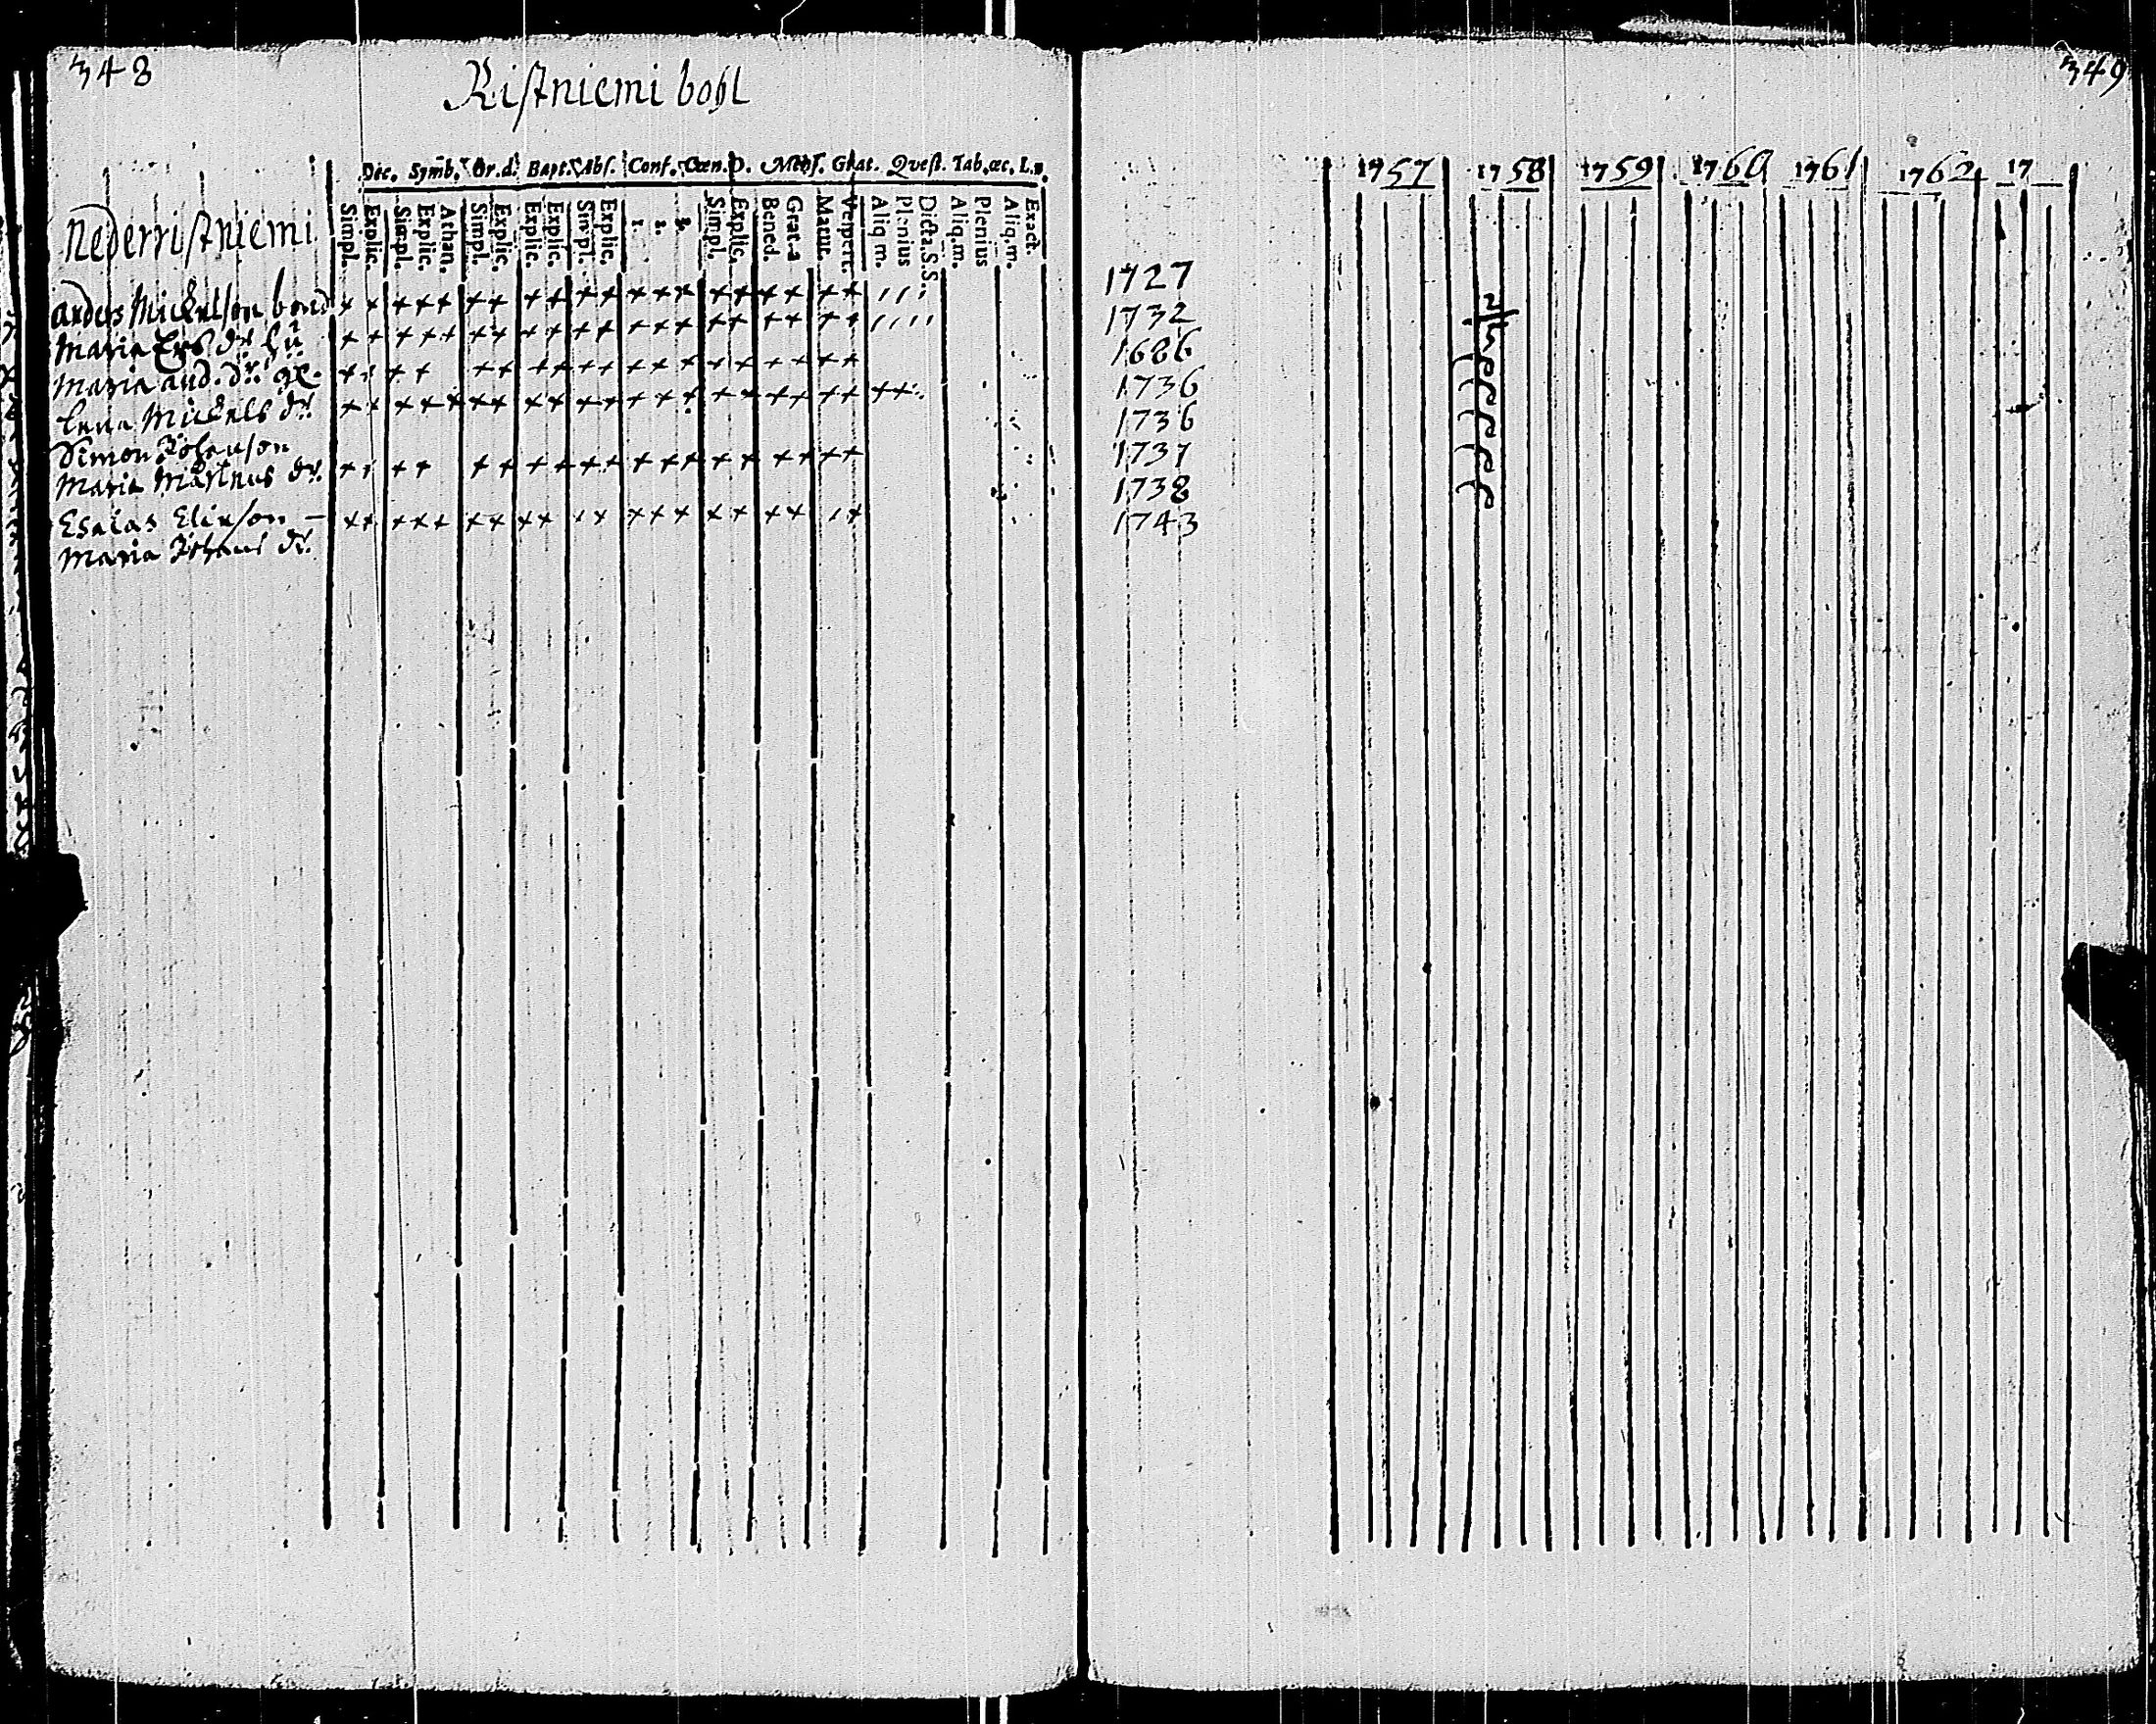 348
Ristniemi bohl
Dec. Symb. Or.d. Bapt. Abs. Conf. Cœn.D. Mens. Grat. Qvest. Tab.œc. L.n.
Simpl. Explic. Simpl. Explic. Athan. Simpl. Explic. Explic. Explic. Simpl. Explic. 1. 2. 3. Simpl. Explic. Bened. Grat.a Matut. Vespert. Aliq.m. Plenius Dicta.S.S. Aliq.m. Plenius Aliq.m. Exact.
Nederristniemi
Anders Mickelson bond
Maria Ers dr hu
Maria And. dr.
Lena Mickels dr
Simon Johanson
Maria Martinus dr.
Esaias Elieson
Maria Johans dr.
349
1757 1758 1759 1760 1761 1762 17
1727
1732
1686
1736
1736
1737
1738
1743